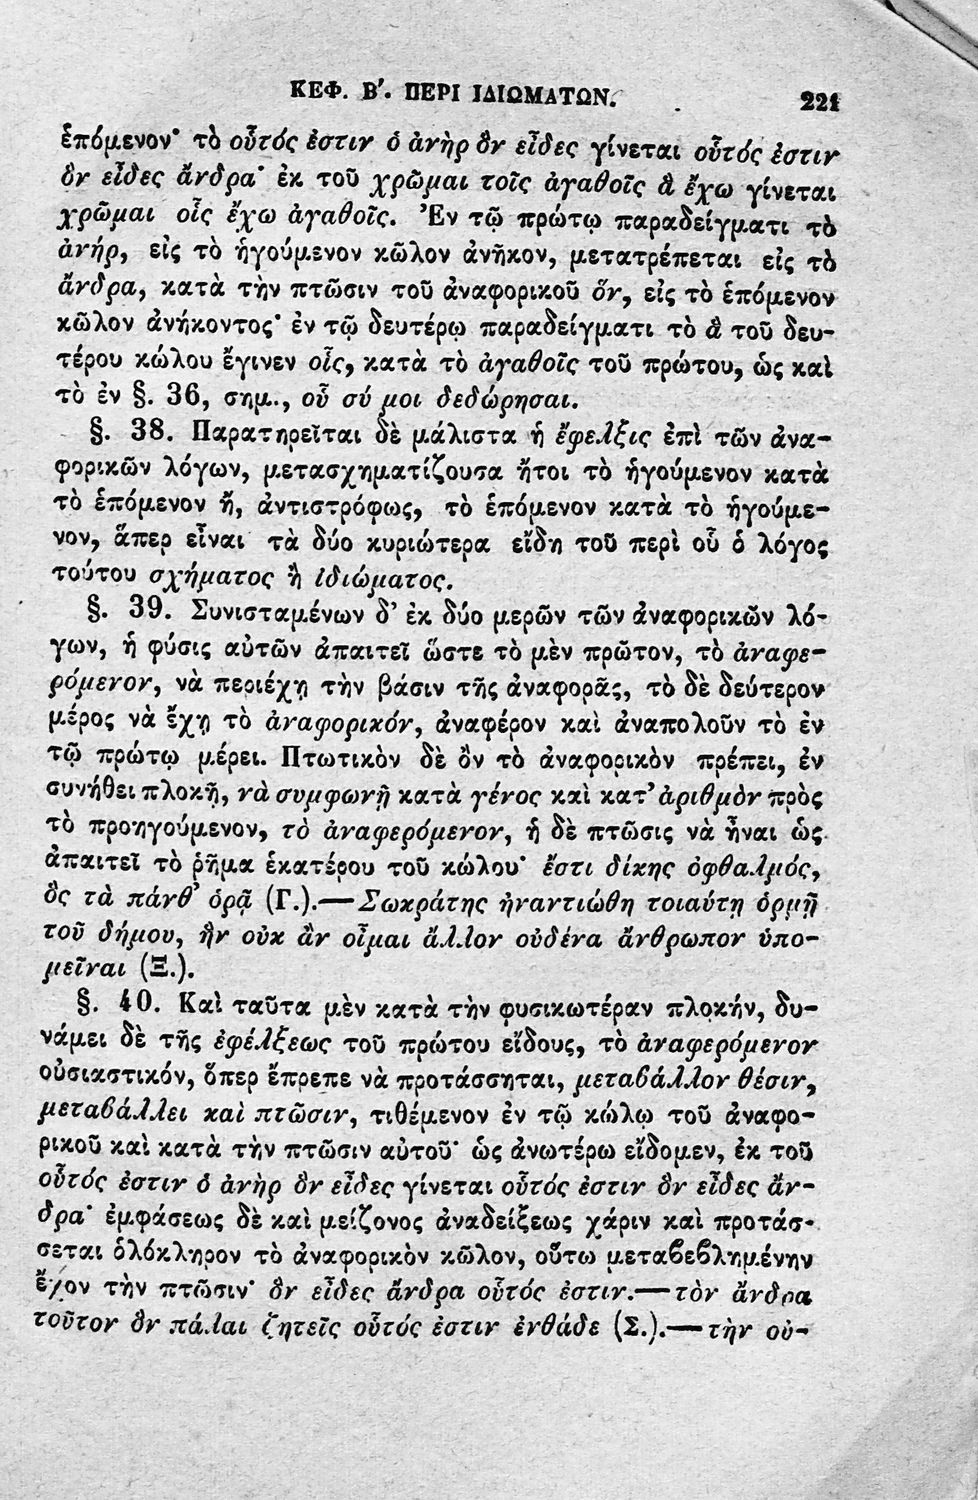 ΚΕΦ. Β'. ΠΕΡΙ ΙΔΙΩΜΑΤΩΝ. 221
ἑπόμενον· τὸ οὗτός ἐστιν ὁ ἀνὴρ ὃν εἶδες γίνεται οὗτός ἐστιν
ὃν εἶδες ἄνδρα· ἐκ τοῦ χρῶμαι τοῖς ἀγαθοῖς ἃ ἔχω γίνεται
χρῶμαι οἷς ἔχω ἀγαθοῖς. Ἐν τῷ πρώτῳ παραδείγματι τὸ
ἀνήρ, εἰς τὸ ἡγούμενον κῶλον ἀνῆκον, μετατρέπεται εἰς τὸ
ἄνδρα, κατὰ τὴν πτῶσιν τοῦ ἀναφορικοῦ ὅν, εἰς τὸ ἑπόμενον
κῶλον ἀνήκοντος· ἐν τῷ δευτέρῳ παραδείγματι τὸ ἃ τοῦ δευ-
τέρου κώλου ἔγινεν οἷς, κατὰ τὸ ἀγαθοῖς τοῦ πρώτου, ὡς καὶ
τὸ ἐν §. 36, σημ., οὗ σύ μοι δεδώρησαι.
§. 38. Παρατηρεῖται δὲ μάλιστα ἡ ἔφελξις ἐπὶ τῶν ἀνα-
φορικῶν λόγων, μετασχηματίζουσα ἤτοι τὸ ἡγούμενον κατὰ
τὸ ἑπόμενον ἤ, ἀντιστρόφως, τὸ ἑπόμενον κατὰ τὸ ἡγούμε-
νον, ἅπερ εἶναι τὰ δύο κυριώτερα εἴδη τοῦ περὶ οὗ ὁ λόγος
τούτου σχήματος ἢ ἰδιώματος.
§. 39. Συνισταμένων δ' ἐκ δύο μερῶν τῶν ἀναφορικῶν λό-
γων, ἡ φύσις αὐτῶν ἀπαιτεῖ ὥστε τὸ μὲν πρῶτον, τὸ ἀναφε-
ρόμενον, νὰ περιέχῃ τὴν βάσιν τῆς ἀναφορᾶς, τὸ δὲ δεύτερον
μέρος νὰ ἔχῃ τὸ ἀναφορικόν, ἀναφέρον καὶ ἀναπολοῦν τὸ ἐν
τῷ πρώτῳ μέρει. Πτωτικὸν δὲ ὂν τὸ ἀναφορικὸν πρέπει, ἐν
συνήθει πλοκῇ, νὰ συμφωνῇ κατὰ γένος καὶ κατ' ἀριθμὸν πρὸς
τὸ προηγούμενον, τὸ ἀναφερόμενον, ἡ δὲ πτῶσις νὰ ἦναι ὡς
ἀπαιτεῖ τὸ ῥῆμα ἑκατέρου τοῦ κώλου· ἔστι δίκης ὀφθαλμός,
ὃς τὰ πάνθ' ὁρᾷ (Γ.).—Σωκράτης ἠναντιώθη τοιαύτῃ ὁρμῇ
τοῦ δήμου, ἣν οὐκ ἂν οἶμαι ἄλλον οὐδένα ἄνθρωπον ὑπο-
μεῖναι (Ξ.).
§. 40. Καὶ ταῦτα μὲν κατὰ τὴν φυσικωτέραν πλοκήν, δυ-
νάμει δὲ τῆς ἐφέλξεως τοῦ πρώτου εἴδους, τὸ ἀναφερόμενον
οὐσιαστικόν, ὅπερ ἔπρεπε νὰ προτάσσηται, μεταβάλλον θέσιν,
μεταβάλλει καὶ πτῶσιν, τιθέμενον ἐν τῷ κώλῳ τοῦ ἀναφο-
ρικοῦ καὶ κατὰ τὴν πτῶσιν αὐτοῦ· ὡς ἀνωτέρω εἴδομεν, ἐκ τοῦ
οὗτός ἐστιν ὁ ἀνὴρ ὃν εἶδες γίνεται οὗτός ἐστιν ὃν εἶδες ἄν-
δρα· ἐμφάσεως δὲ καὶ μείζονος ἀναδείξεως χάριν καὶ προτάσ-
σεται ὁλόκληρον τὸ ἀναφορικὸν κῶλον, οὕτω μεταβεβλημένην
ἔχον τὴν πτῶσιν· ὃν εἶδες ἄνδρα οὗτός ἐστιν.—τὸν ἄνδρα
τοῦτον ὃν πάλαι ζητεῖς οὗτός ἐστιν ἐνθάδε (Σ.).—τὴν οὐ-